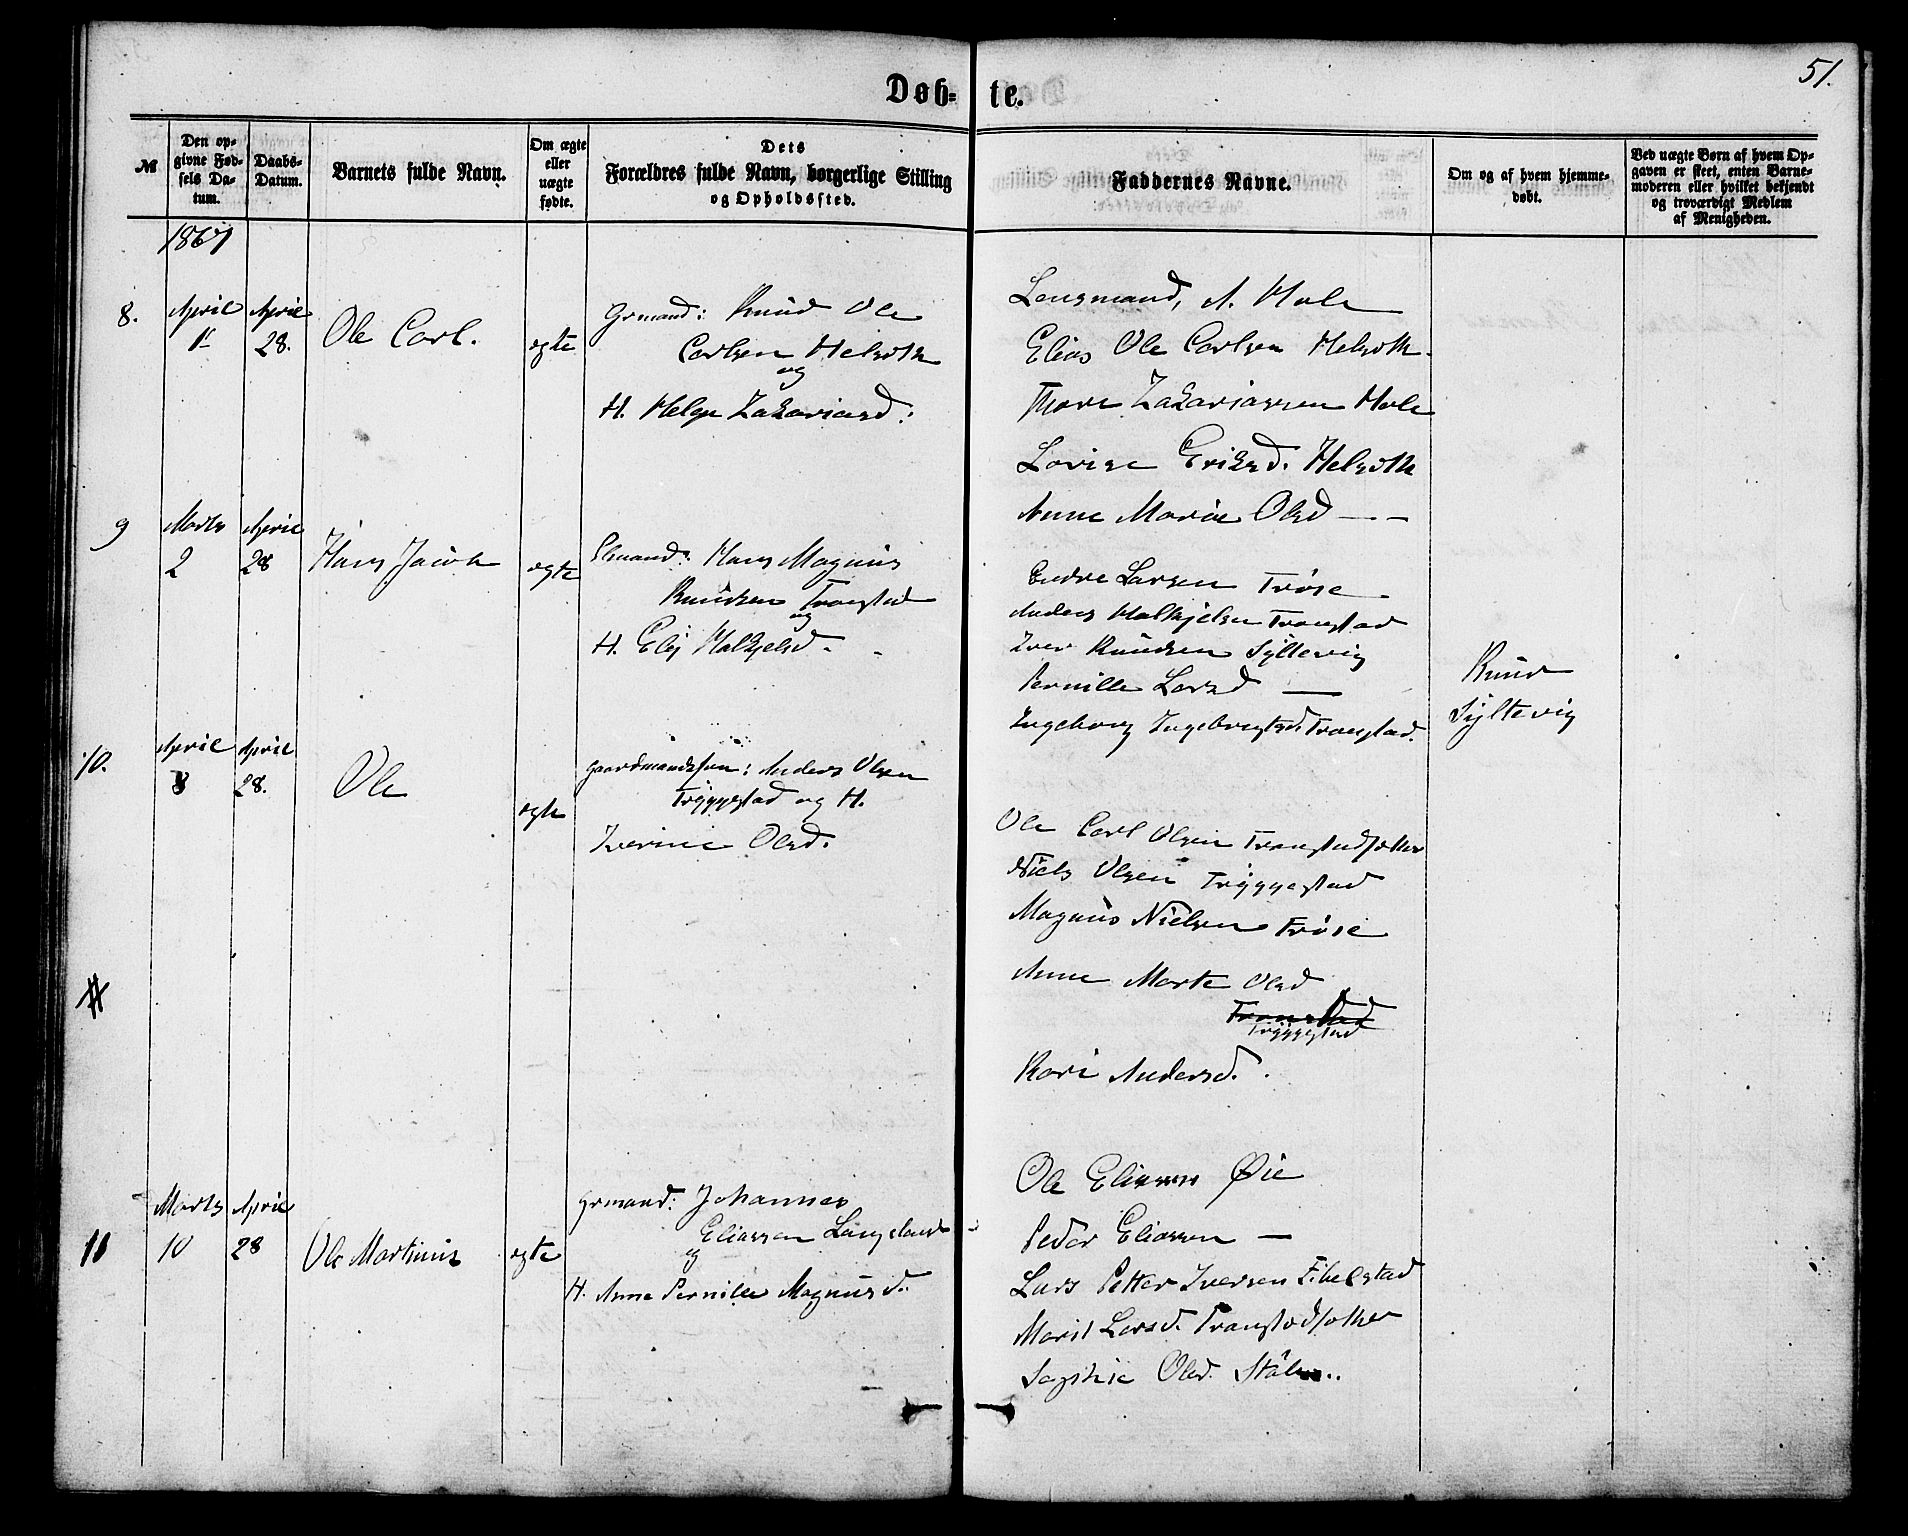 51.
Døb- te.
№
Den op-
givne Fød-
sels Da-
tum.
Daabs-
Datum.
Barnets fulde Navn.
Om ægte
eller
uægte
fødte.
Dets
Forældres fulde Navn, borgerlige Stilling
og Opholdssted.
Faddernes Navne.
Om og af hvem hjemme-
døbt.
Ved uægte Børn af hvem Op-
gaven er skeet, enten Barne-
moderen eller hvilket bekjendt
og troværdigt Medlem
af Menigheden.
1867
8.
April
1
April
28.
Ole Carl.
egte
Grmand: Knud Ole
Carlsen Helsoth
og
H. Helge Zakariasd:
Lensmand, A. Hole
Elias Ole Carlsen Helsoth
Thore Zakariassen Hole
Lovise Eriksd. Helsoth
Anne Marie Olsd — —
9
Marts
2
April
28
Hans Jacob
egte
Hans Magnus
Knudsen Tronstad
og
H. Elij Halkjelsd.
Endre Larsen Trøse
Anders Halkjelsen Tronstad
Iver Knudsen Syltevig
Pernille Larsd —
Ingeborg Ingebrigtsd. Tronstad.
Knud
Syltevig
10.
April
3
April
28.
Ole
egte
Gaardmandssøn: Anders Olsen
Tryggestad og H.
Iverine Olsd.
Ole Carl Olsen
Niels Olsen Tryggestad
Magnus Nielsen Trøse
Anne Marte Olsd
Tronstad
Tryggestad
Kari Andersd.
11
Marts
10
April
28
Ole Martinus
egte
Grmand: Johannes
Eliassen Langeland
og
H. Anne Pernille Magnusd.
Ole Eliassen Øie
Peder Eliassen —
Lars Petter Iversen Fibelstad
Marit Larsd.
Sophie Olsd.